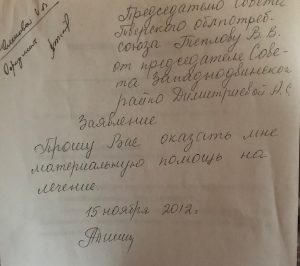 Председателю Совета
Тверского облпотреб-
союза Теплову В. В.
от председателя Сове-
та Западнодвинского
райпо Димитриевой Н. С.
Заявление
Прошу Вас оказать мне
материальную помощь на
лечение.
15 ноября 2012 г.